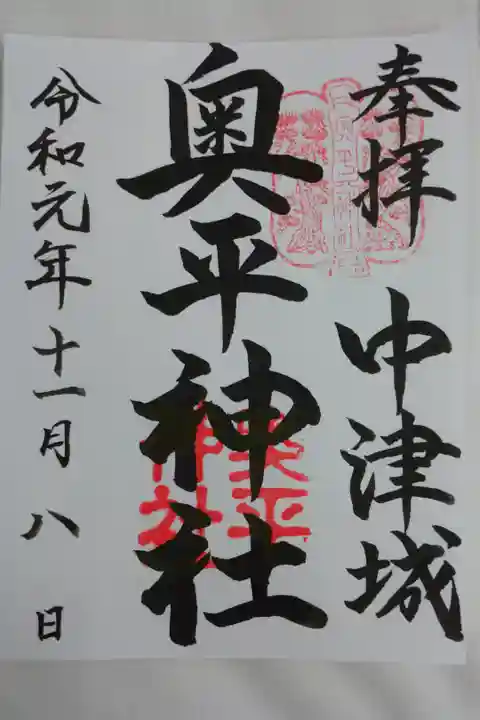 奉拝
中津城
奥平神社
奥平
神社
令和元年十一月八日